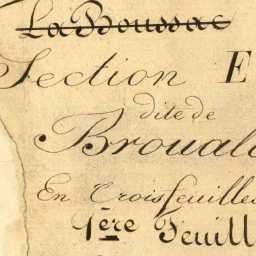 La Boussac
Section E
dite de
Broual
En Trois feuilles
1ère Feuill